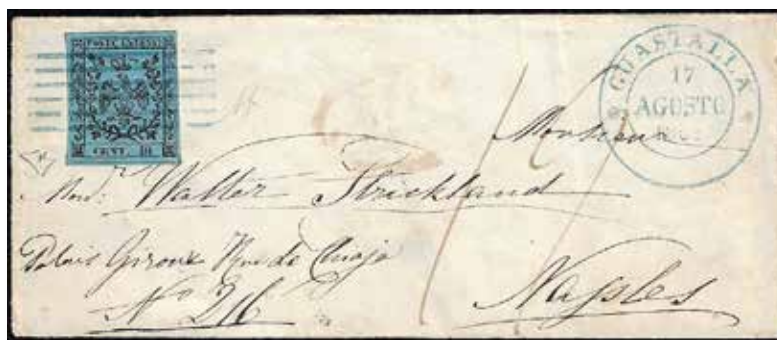 POSTE ESTENSI
CENT. 40
GUASTALLA
17
AGOSTO
Monsieur
Walter Strickland
Palais Giroux Rue de Chiaja
Nº 216
Naples